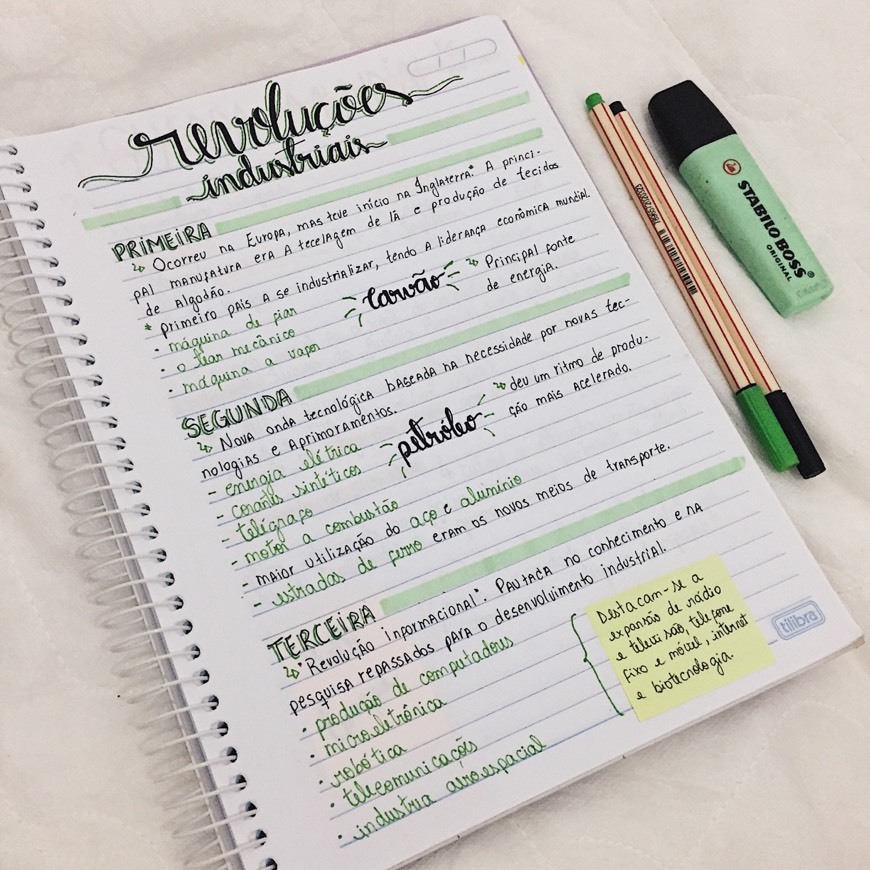 revoluções
industriais
PRIMEIRA
↳ Ocorreu na Europa, mas teve início na Inglaterra.* A princi-
pal manufatura era a tecelagem de lã e produção de tecidos
de algodão.
* primeiro país a se industrializar, tendo a liderança econômica mundial.
- máquina de fiar
- o tear mecânico
- máquina a vapor
carvão
↳ Principal fonte
de energia.
SEGUNDA
↳ Nova onda tecnológica baseada na necessidade por novas tec-
nologias e aprimoramentos.
petróleo
↳ deu um ritmo de produ-
ção mais acelerado.
- energia elétrica
- corantes sintéticos
- telégrafo
- motor a combustão
- maior utilização do aço e alumínio
- estradas de ferro eram os novos meios de transporte.
TERCEIRA
↳ "Revolução Informacional". Pautada no conhecimento e na
pesquisa repassados para o desenvolvimento industrial.
- produção de computadores
- microeletrônica
- robótica
- telecomunicações
- industria aeroespacial
Destacam-se a
expansão de rádio
e televisão, telefone
fixo e móvel, internet
e biotecnologia.
tilibra
STABILO BOSS
ORIGINAL